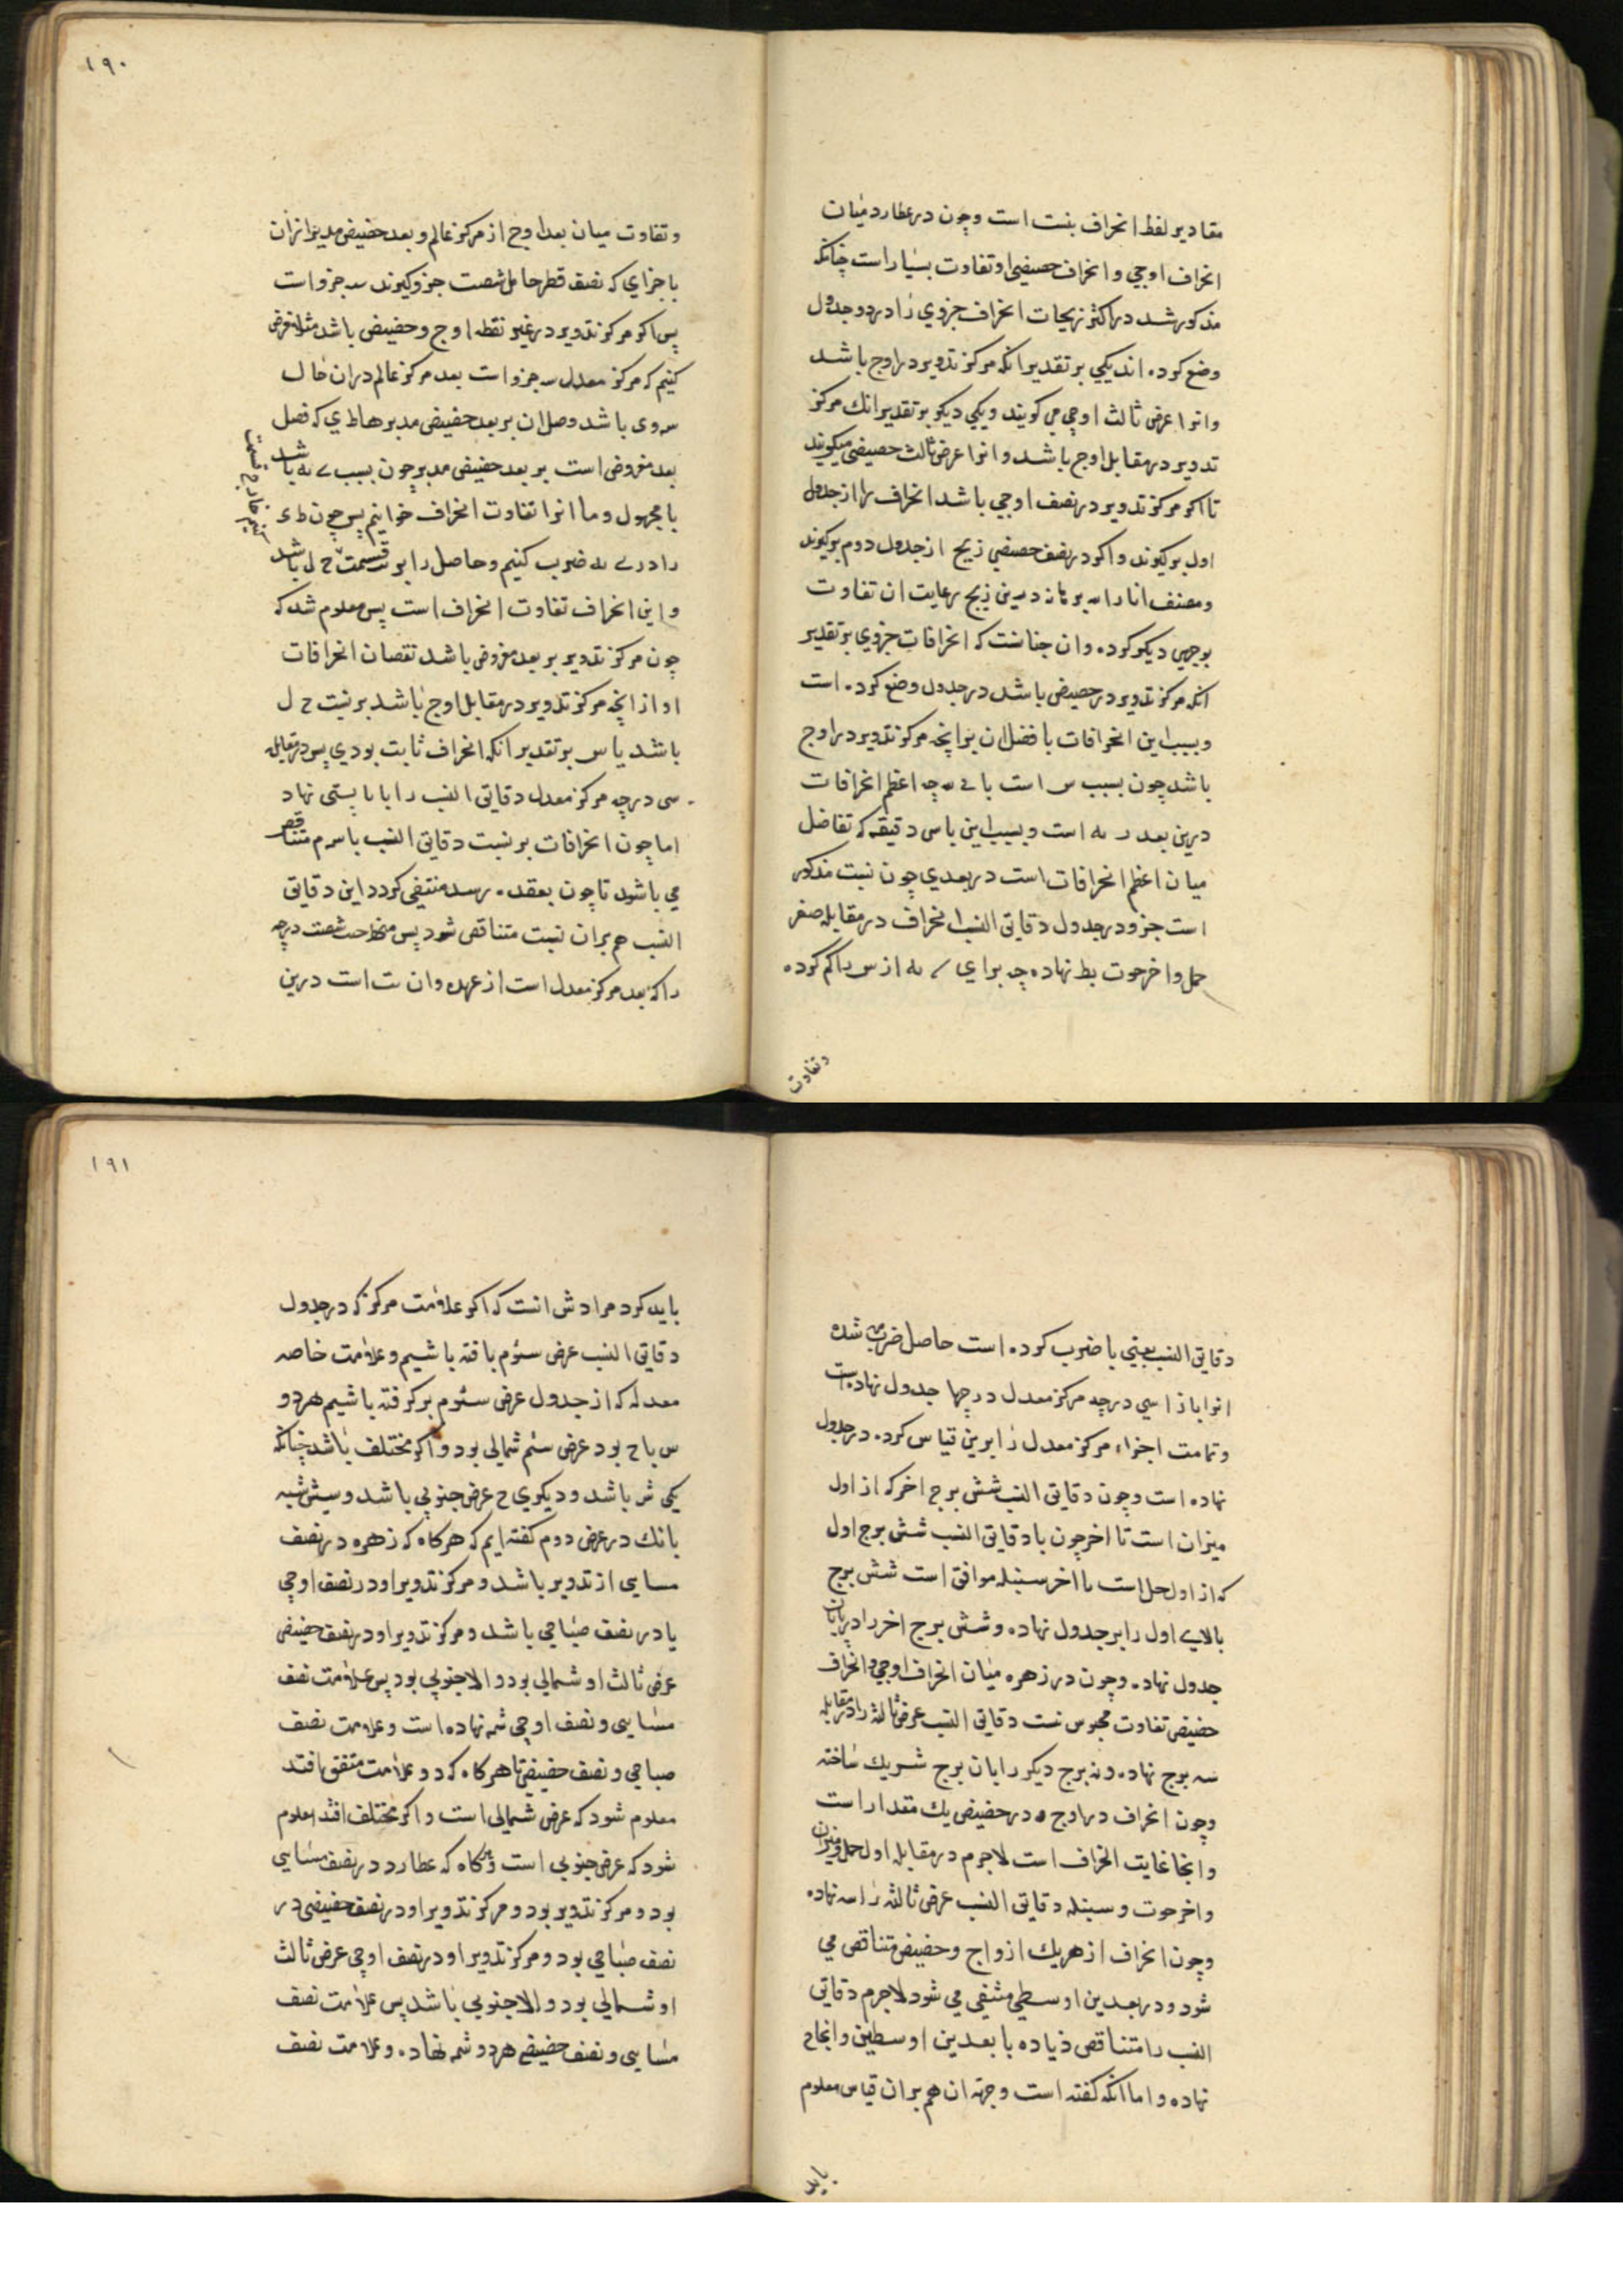 مقادیر لفظ انحراف بنست است وچون درعطارد میان
انحراف اوجی وانحراف حضیضی اوتفاوت بسیار است چنانکه
مذکور شد در اکثر زیجات انحراف جزوی را در دو جدول
وضع کرده اند یکی بر تقدیر انکه مرکز تدویر در اوج باشد
وانرا عرض ثالث اوجی می کویند ویکی دیکر بر تقدیر انک مرکز
تدویر در مقابل اوج باشد وانرا عرض ثالث حضیضی میکویند
تا اکر مرکز تدویر در نصف اوجی باشد انحراف را از جدول
اول برکیرند واکر در نصف حضیضی زیج از جدول دوم برکیرند
ومصنف انار الله برهانه درین زیج رعایت ان تفاوت
بوجهی دیکر کرده وان چنانست که انحرافات جزوی بر تقدیر
انکه مرکز تدویر در حضیض باشد در جدول وضع کرده است
وبسبب این انحرافات با فضل ان بر انچه مرکز تدویر در اوج
باشد چون بسبب س است با ے مه چه اعظم انحرافات
درین بعد ر مه است وبسبب این باس دقیقه که تفاضل
میان اعظم انحرافات است در بعدی چون نسبت مذکور
است جزو در جدول دقایق النسب انحراف در مقابله صفر
حمل واخر حوت بط نهاده چه برای ے مه از س کم کرده
وتفاوت
۱۹۰
وتفاوت میان بعد اوج از مرکز عالم وبعد حضیض مدیر ازان
باجزای که نصف قطر حامل شصت جزو کیرند سه جزو است
پس اکر مرکز تدویر در غیر نقطه اوج وحضیض باشد مثلا فرض
کنیم که مرکز معدل سه جزو است بعد مرکز عالم دران حال
سه وی باشد وصل ان بر بعد حضیض مدیر هاط ی که فضل
بعد مفروض است بر بعد حضیض مدیر چون بسبب ے مه باشد
با مجهول وما انرا تفاوت انحراف خوانیم پس چون ط ی
را در ے مه ضرب کنیم وحاصل را بر قسمت ح ل باشد
واین انحراف تفاوت انحراف است پس معلوم شد که
چون مرکز تدویر بر بعد مفروض باشد نقصان انحرافات
او از انچه مرکز تدویر در مقابل اوج باشد بر نسبت ح ل
باشد یا س بر تقدیر انکه انحراف ثابت بودی پس در مقابله
سی درجه مرکز معدل دقایق النسب را بایستی نهاد
اما چون انحرافات بر نسبت دقایق النسب باسرم متناقص
می باشد تا چون بعقده رسد منتفی کردد این دقایق
النسب هم بران نسبت متناقص شود پس شصت درجه
را که بعد مرکز معدل است از عهده وان ست است درین
دقایق النسب یعنی با ضرب کرده است حاصل ضرب شده
انرا بازا سی درجه مرکز معدل درجها جدول نهاده است
وتمامت اجزاء مرکز معدل را برین قیاس کرده در جدول
نهاده است وچون دقایق النسب شش برج اخر که از اول
میزان است تا اخر چون با دقایق النسب شش برج اول
که از اول حمل است با اخر سنبله موافق است شش برج
بالای اول را بر جدول نهاده وشش برج اخر را در پایان
جدول نهاده وچون در زهره میان انحراف اوجی وانحراف
حضیضی تفاوت محسوس نیست دقایق النسب عرض ثالث را در مقابله
سه برج نهاده ونه برج دیکر را بان برج شریک ساخته
وچون انحراف در اوج ودر حضیض یک مقدار است
وانجا غایت انحراف است لاجرم در مقابله اول حمل ومیزان
واخر حوت وسنبله دقایق النسب عرض ثالثه را سه نهاده
وچون انحراف از هر یک از واج وحضیض متناقص می
شود ودر بعدین اوسطی منتفی می شود لاجرم دقایق
النسب را متناقص زیاده با بعدین اوسطین وانجا ح
نهاده واما انکه کفته است وجهه ان هم بران قیاس معلوم
باید
۱۹۱
باید کرد مرادش انست که اکر علامت مرکز که در جدول
دقایق النسب عرض سئوم یافته باشیم وعلامت خاصه
معدله که از جدول عرض سئوم برکرفته باشیم هر دو
س یا ح بود عرض سئم شمالی بود واکر مختلف باشد چنانکه
یکی ش باشد ودیکری ح عرض جنوبی باشد
بانک در عرض دوم کفته ایم که هر کاه که زهره در نصف
مسایی از تدویر باشد ومرکز تدویر او در نصف اوجی
یا در نصف صباحی باشد ومرکز تدویر او در نصف حضیضی
عرض ثالث او شمالی بود والا جنوبی بود پس علامت نصف
مسایی ونصف اوجی شمه نهاده است وعلامت نصف
صباحی ونصف حضیضی تا هر کاه که دو علامت متفق افتد
معلوم شود که عرض شمالی است واکر مختلف افتد معلوم
شود که عرض جنوبی است وهرکاه که عطارد در نصف مسایی
بود ومرکز تدویر بود ومرکز تدویر او در نصف حضیضی در
نصف صباحی بود ومرکز تدویر او در نصف اوجی عرض ثالث
او شمالی بود والا جنوبی باشد پس علامت نصف
مسایی ونصف حضیضی هر دو شمه نهاده وعلامت نصف